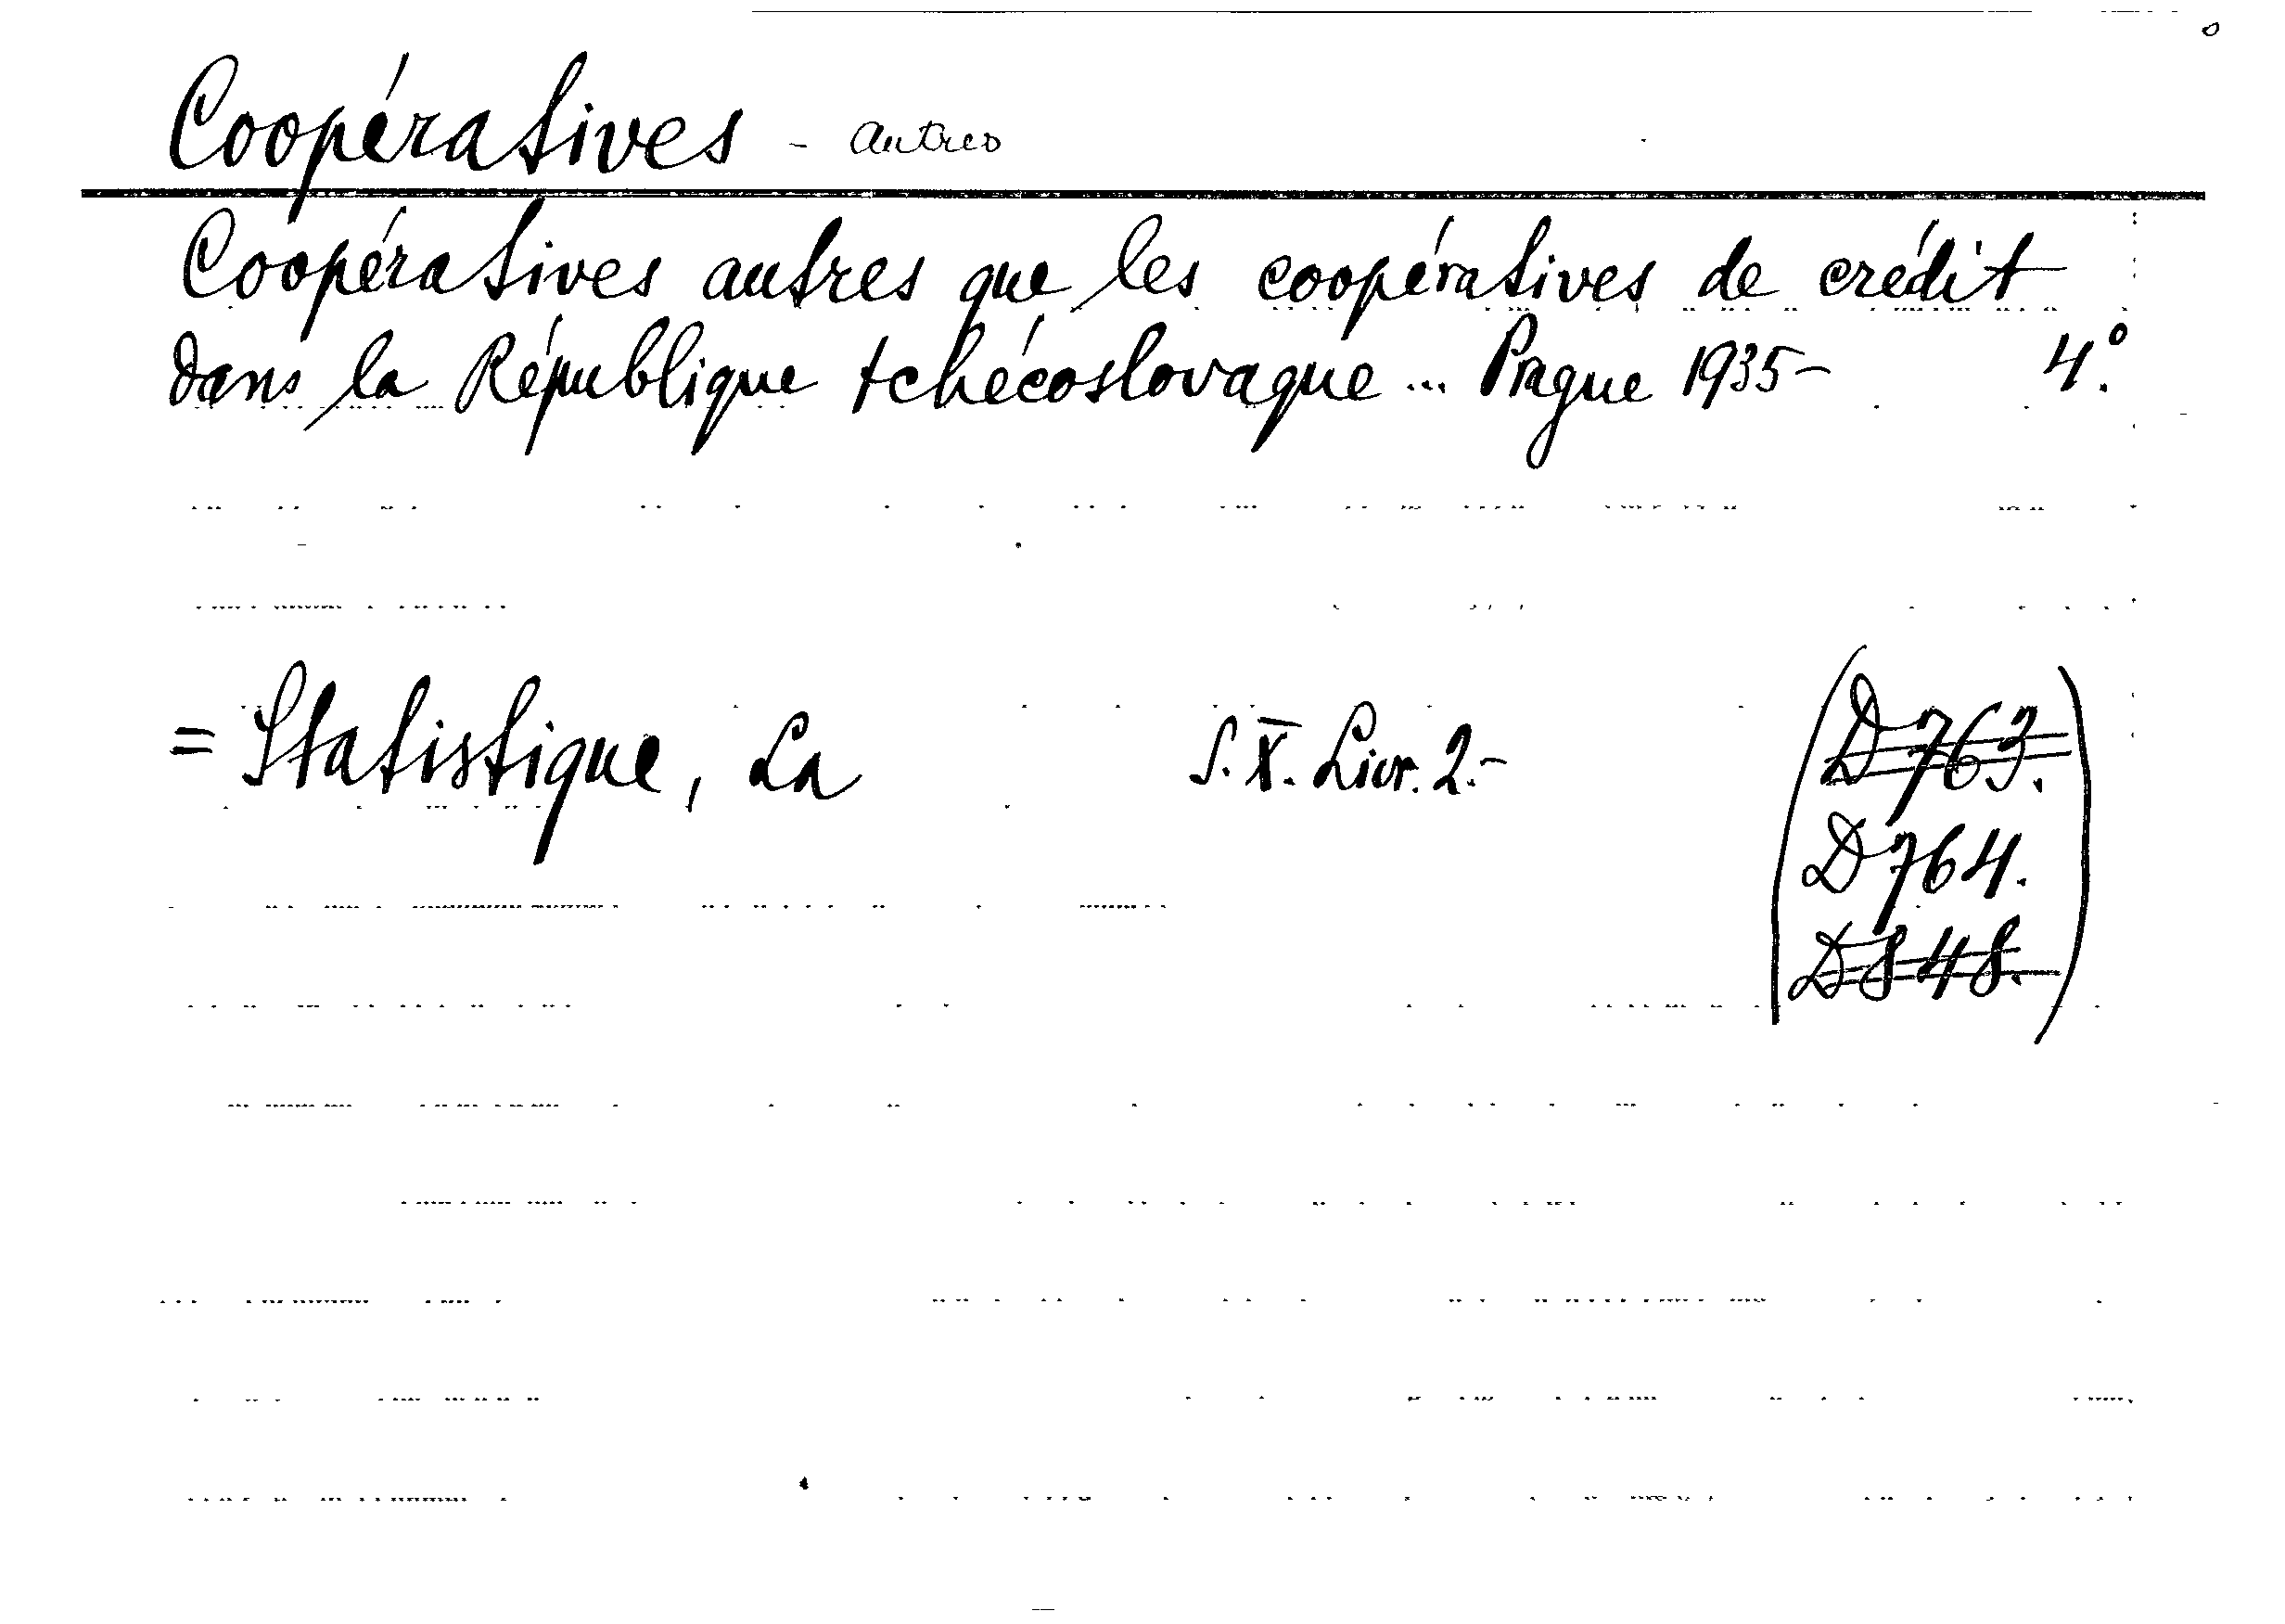 Coopératives - autres
Coopératives autres que les coopératives de crédit
dans la République tchécoslovaque ... Prague 1935- 4.º
= Statistique, La S. X. Livr. 2.- (D763.
D764.
D848.)